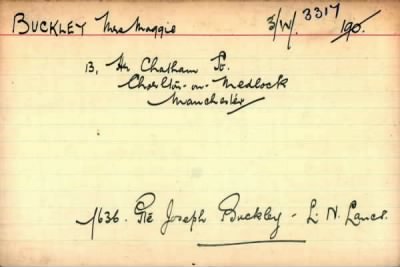 BUCKLEY Mrs Maggie 3/W. 3317
190.
13, Hr Chatham St.
Chorlton-on-Medlock
Manchester
1636. Pte Joseph Buckley - L. N. Lancs.